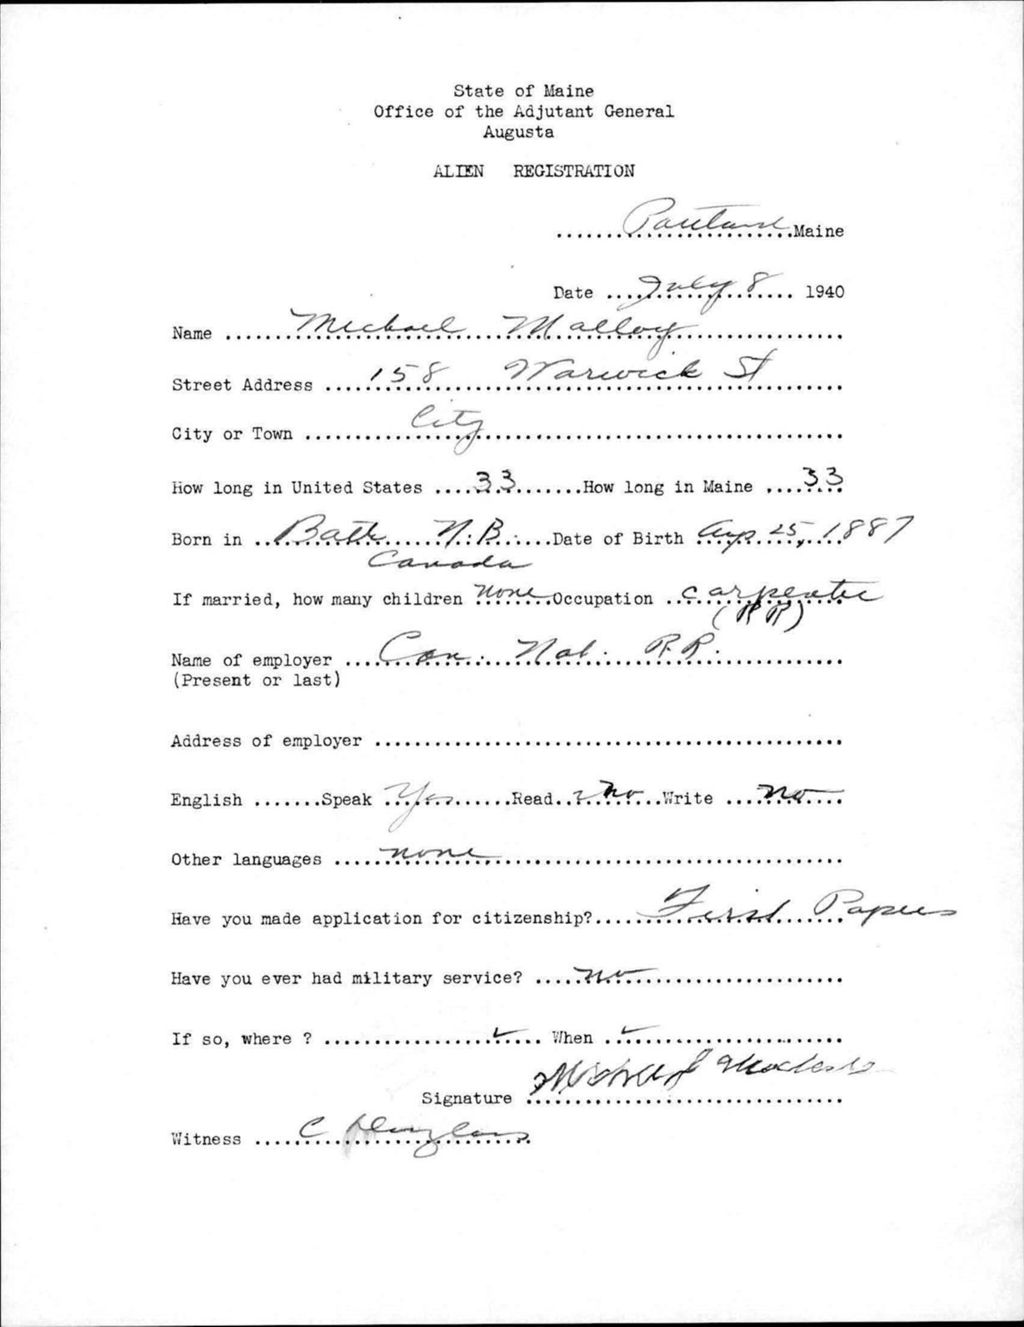 State of Maine
Office of the Adjutant General
Augusta
ALIEN REGISTRATION
.......Portland.......Maine
Date ....July 8.... 1940
Name .......Michael Malloy.......
Street Address .....158 Warwick St.....
City or Town ..........City..........
How long in United States ....33.......How long in Maine ....33
Born in ..Bath N.B......Date of Birth Aug 25, 1887
Canada
If married, how many children none Occupation ..carpenter
(RR)
Name of employer ....Can. Nat. R.R.......
(Present or last)
Address of employer ...............................................
English .......Speak Yes.......Read..no...Write ...no....
Other languages .....none...............
Have you made application for citizenship?.....First Papers
Have you ever had military service? .....no...............
If so, where ? .................✓.... When ..✓...............
Signature ................................
Witness ....C Douglass